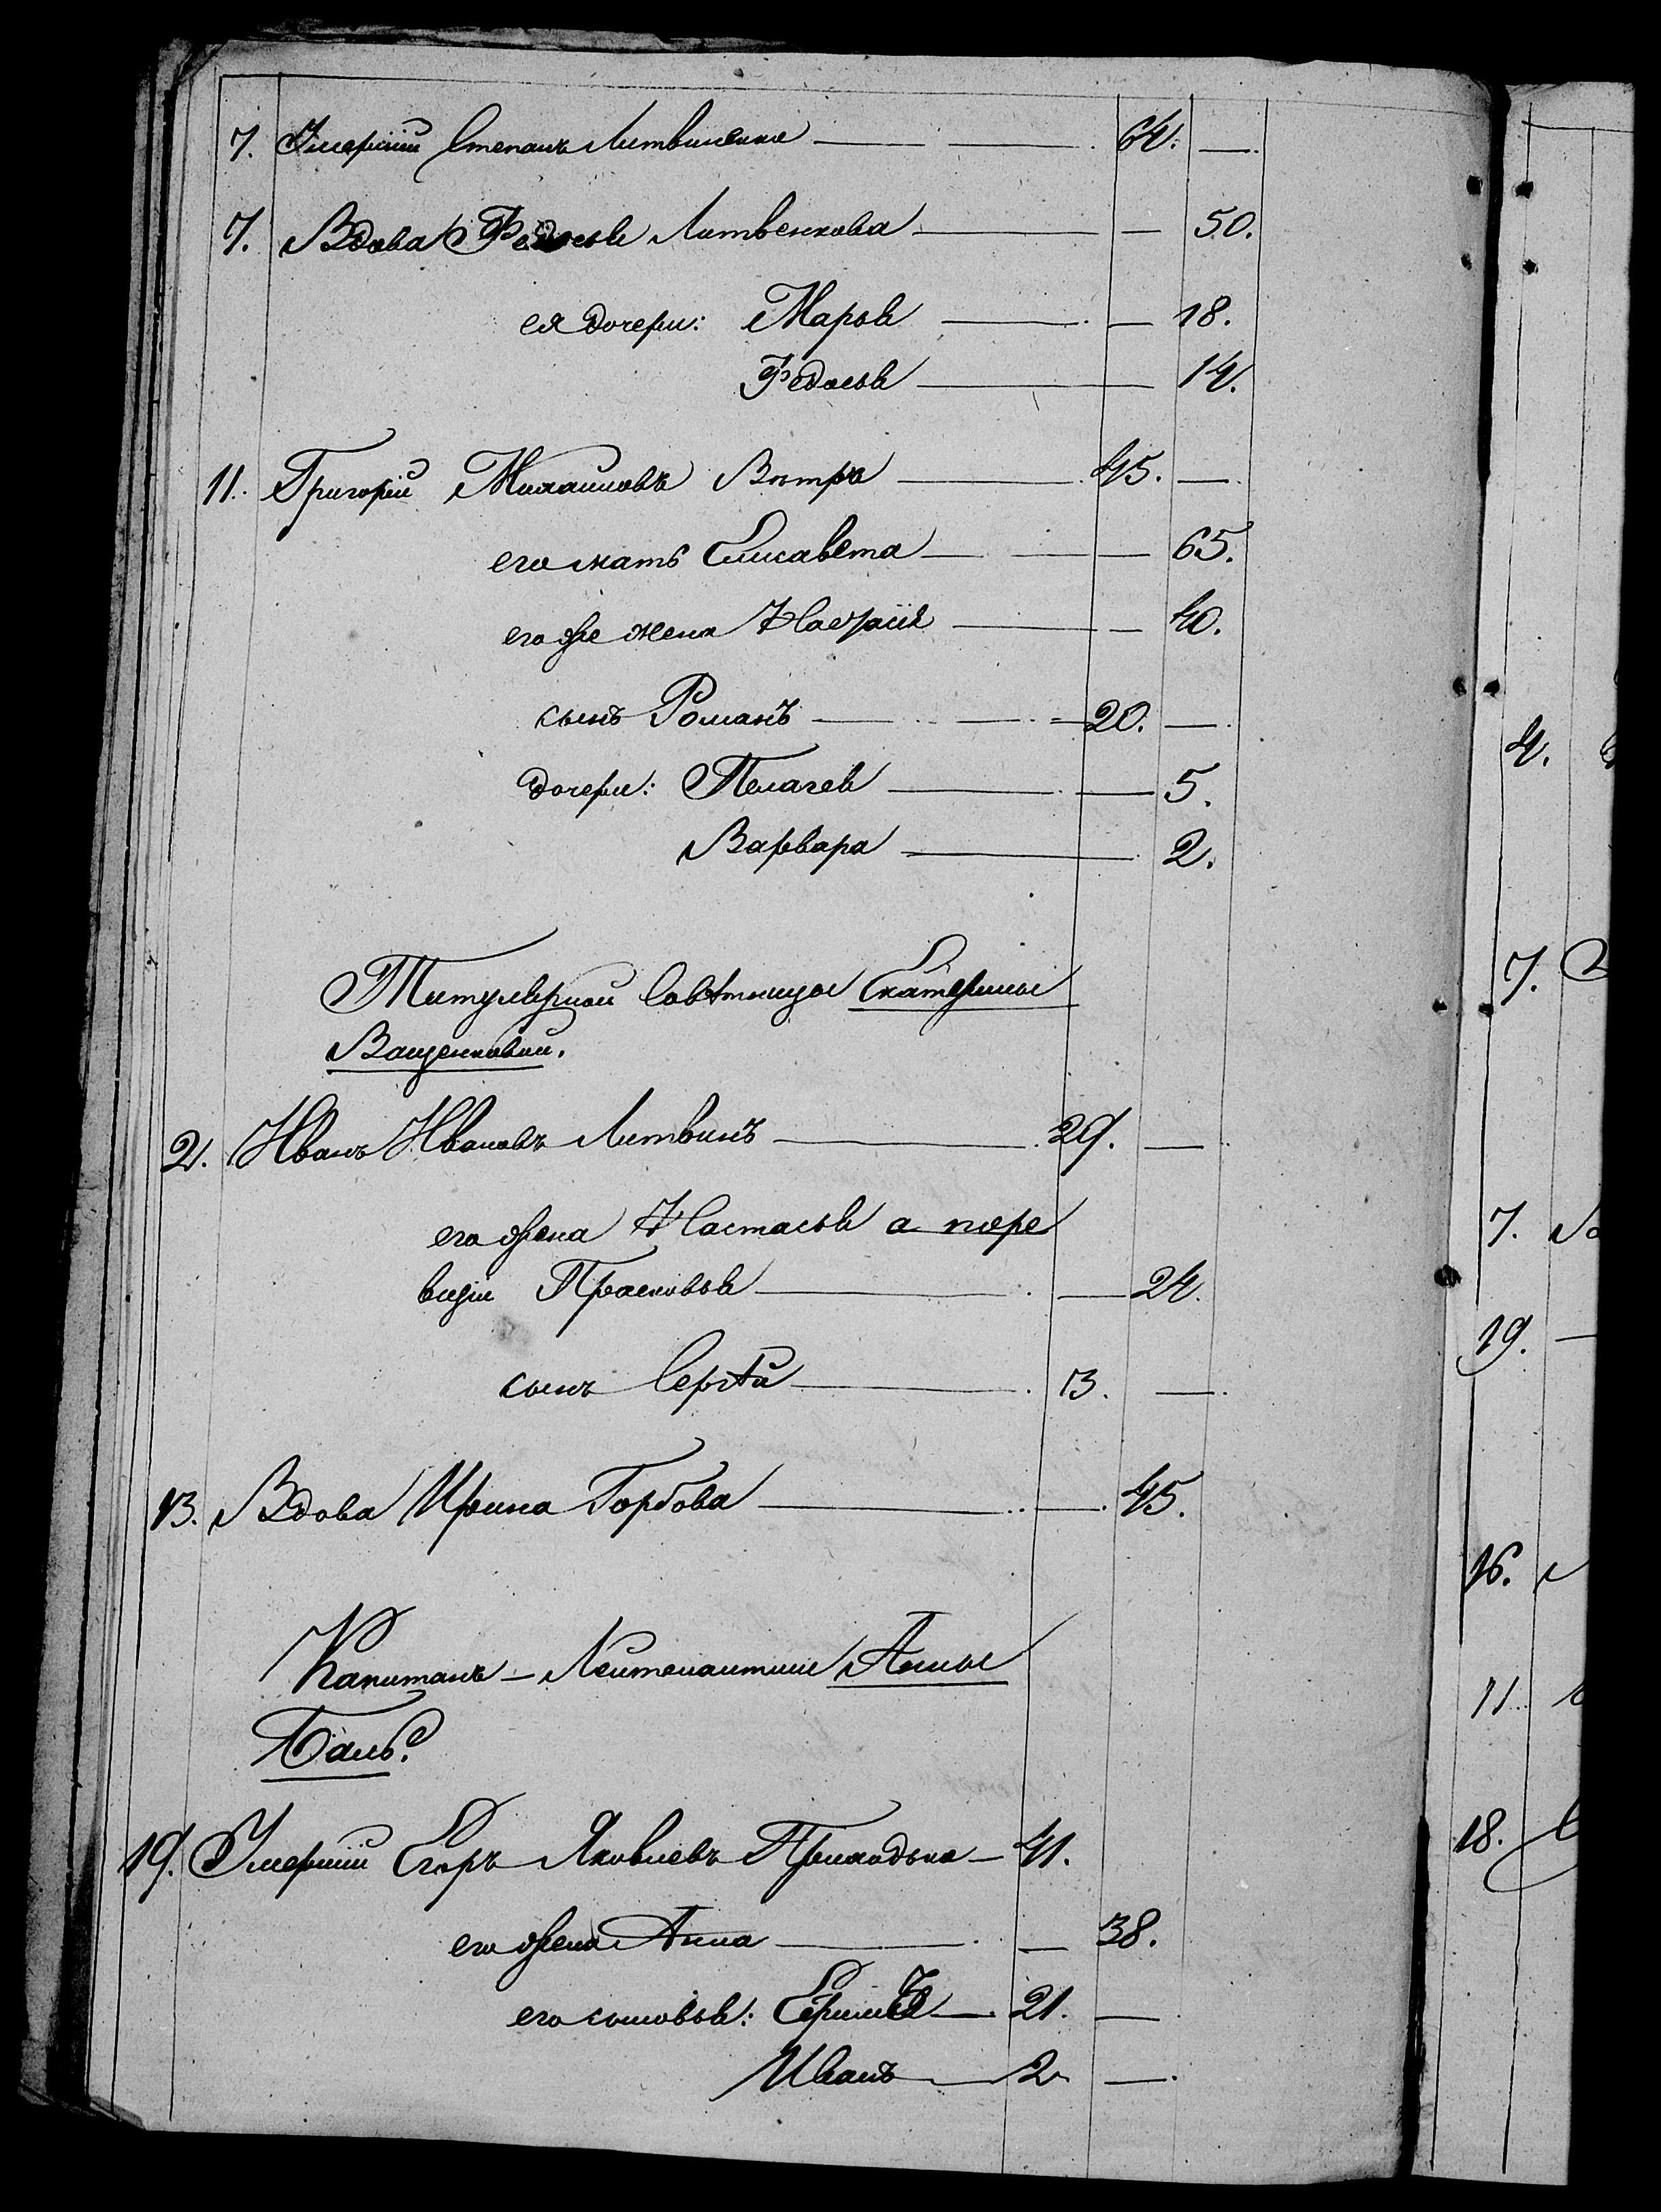 7. Умершій Степанъ Литвиненко — 64. —
7. Вдова Федосья Литвенкова — — 50.
ея дочери: Марья — — 18.
Федосья — 14.
11. Григорій Михаиловъ Вѣтръ — 45. —
его мать Елисавета — — 65.
его же жена — — 40.
сынъ Романъ — 20. —
дочери: Пелагея — — 5.
Варвара — 2.
Титулярной Совѣтницы Екатерины
Ващенковой.
2. Иванъ Ивановъ Литвинъ — 29. —
его жена Настасья а по ре
визіи Прасковья — — 24.
сынъ Сергѣй — 13. —
13. Вдова Ирина Горбова — — 45.
Капитанъ-Лейтенантши Анны
19. Умершій Егоръ Яковлевъ Приходько — 41.
его жена Анна — — 38.
его сыновья: — 21. —
Иванъ — 2 —
4.
7. В
7.
19. —
16.
11.
18.